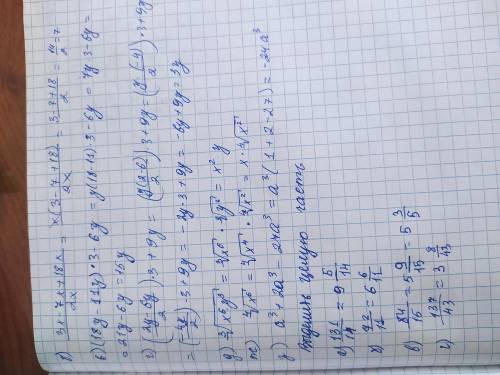 б) (3x - 7x + 18x)/2x = x(3 - 7 + 18)/2x = (3 - 7 + 18)/2 = 14/2 = 7
в) (18y - 11y) · 3 - 6y = y(18 - 11) · 3 - 6y = 7y · 3 - 6y =
= 21y - 6y = 15y
г) ((2y - 6y)/2) · 3 + 9y = (y(2 - 6)/2) · 3 + 9y = (y · (-4)/2) · 3 + 9y
= (-4y/2) · 3 + 9y = -2y · 3 + 9y = -6y + 9y = 3y
д) ∛x⁶y³ = ∛x⁶ · ∛y³ = x² y
ж) ∜x⁶ = ∜x⁴ · ∜x² = x · ∜x²
з) a³ + 2a³ - 27a³ = a³(1 + 2 - 27) = -24a³
Выделить целую часть
а) 131/14 = 9 5/14
72/11 = 6 6/11
в) 84/15 = 5 9/15 = 5 3/5
137/43 = 3 8/43